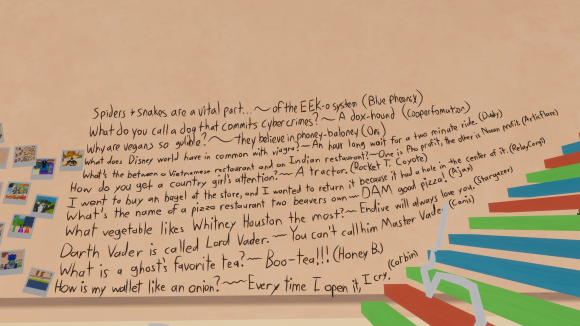 Spiders + snakes are a vital part... ~ of the EEK-o system (Blue Phoenix)
What do you call a dog that commits cyber crimes? ~ A dox-hound (Cooperformation)
Why are vegans so gullible? ~ They believe in phoney-baloney (Oni)
What does Disney world have in common with viagra? ~ An hour long wait for a two minute ride. (Daby)
What's the between a Vietnamese restaurant and an Indian restaurant? ~ One is Pho profit, the other is Naan profit. (Articflare)
How do you get a country girl's attention? ~ A tractor. (Rocket T. Coyote)
I want to buy an bagel at the store, and I wanted to return it because it had a hole in the center of it. (RelayCorgi)
What's the name of a pizza restaurant two beavers own ~ DAM good pizza! (Ajax)
What vegetable likes Whitney Houston the most? ~ Endive will always love you. (Stargazer)
Darth Vader is called Lord Vader. ~ You can't call him Master Vader (Canis)
What is a ghost's favorite tea? ~ Boo-tea!!! (Honey B.)
How is my wallet like an onion? ~~ Every time I open it, I cry. (Corbin)